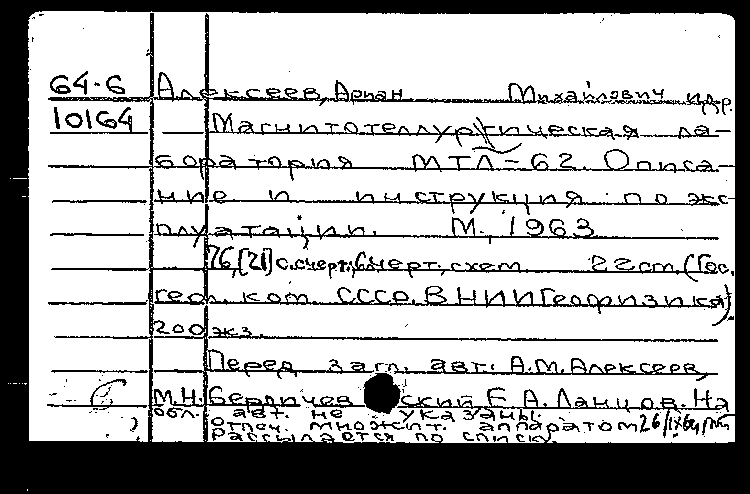 64-6 Алексеев, Ариан Михайлович и др.
10164 Магнитотеллургическая ла-
боратория МТЛ-62. Описа-
ние и инструкция по экс-
плуатации. М., 1963
76,[21] с. с черт.; схем. 22 см. (Гос.
геол. ком. СССР. ВНИИГеофизика)
200 экз.
Перед загл. авт.: А.М. Алексеев,
М.Н. Бердичевский, Е.А. Ланцов. На
обл. авт. не указаны.
Отпеч. множит. аппаратом
Рассылается по списку.